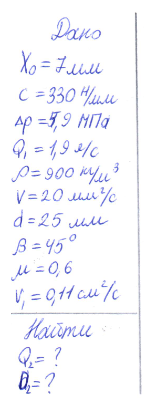 Дано
X₀ = 7 мм
c = 330 Н/мм
Δp = 5,9 МПа
Q₁ = 1,9 л/с
ρ = 900 кг/м³
ν = 20 мм²/с
d = 25 мм
β = 45°
μ = 0,6
ν₁ = 0,11 см²/с
Найти
Q₂ = ?
D₂ = ?